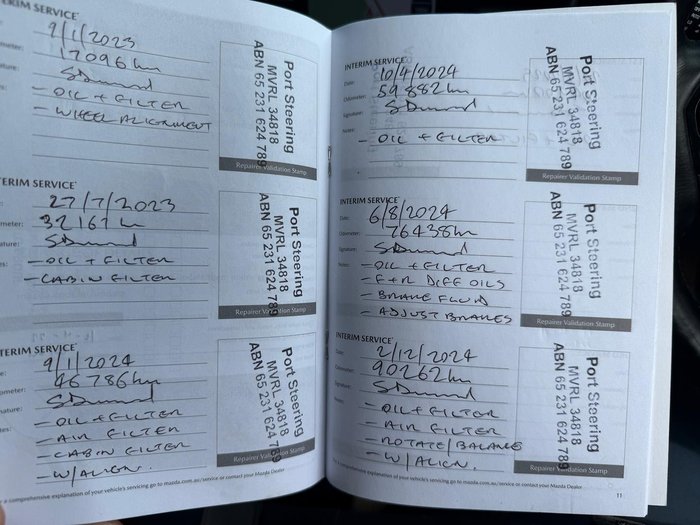 INTERIM SERVICE
9/1/2023
17096 km
- OIL + FILTER
- WHEEL ALIGNMENT
Port Steering
MVRL 34818
ABN 65 231 624 789
Repairer Validation Stamp
TERIM SERVICE
27/7/2023
32167 km
- OIL + FILTER
- CABIN FILTER
Port Steering
MVRL 34818
ABN 65 231 624 789
Repairer Validation Stamp
TERIM SERVICE
9/1/2024
46786 km
- OIL + FILTER
- AIR FILTER
- CABIN FILTER
- W/ALIGN.
Port Steering
MVRL 34818
ABN 65 231 624 789
Repairer Validation Stamp
a comprehensive explanation of your vehicle's servicing go to mazda.com.au/service or contact your Mazda Dealer
INTERIM SERVICE
Date: 10/4/2024
Odometer: 59882 km
Signature:
Notes:
- OIL + FILTER
Port Steering
MVRL 34818
ABN 65 231 624 789
Repairer Validation Stamp
INTERIM SERVICE
Date: 6/8/2024
Odometer: 76438 km
Signature:
Notes: - OIL + FILTER
- F+R DIFF OILS
- BRAKE FLUID
- ADJUST BRAKES
Port Steering
MVRL 34818
ABN 65 231 624 789
Repairer Validation Stamp
INTERIM SERVICE
Date: 2/12/2024
Odometer: 90262 km
Signature:
Notes: - OIL + FILTER
- AIR FILTER
- ROTATE/BALANCE
- W/ALIGN.
Port Steering
MVRL 34818
ABN 65 231 624 789
Repairer Validation Stamp
a comprehensive explanation of your vehicle's servicing go to mazda.com.au/service or contact your Mazda Dealer
11